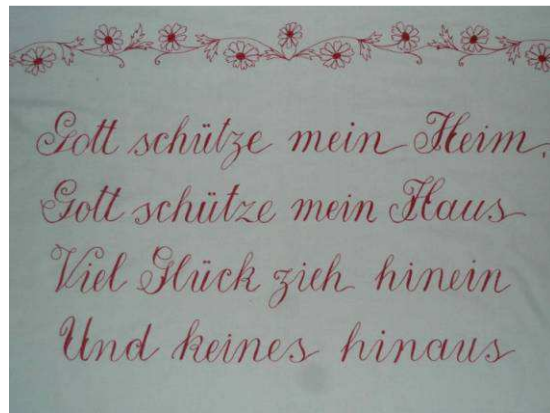 Gott schütze mein Heim,
Gott schütze mein Haus
Viel Glück zieh hinein
Und keines hinaus